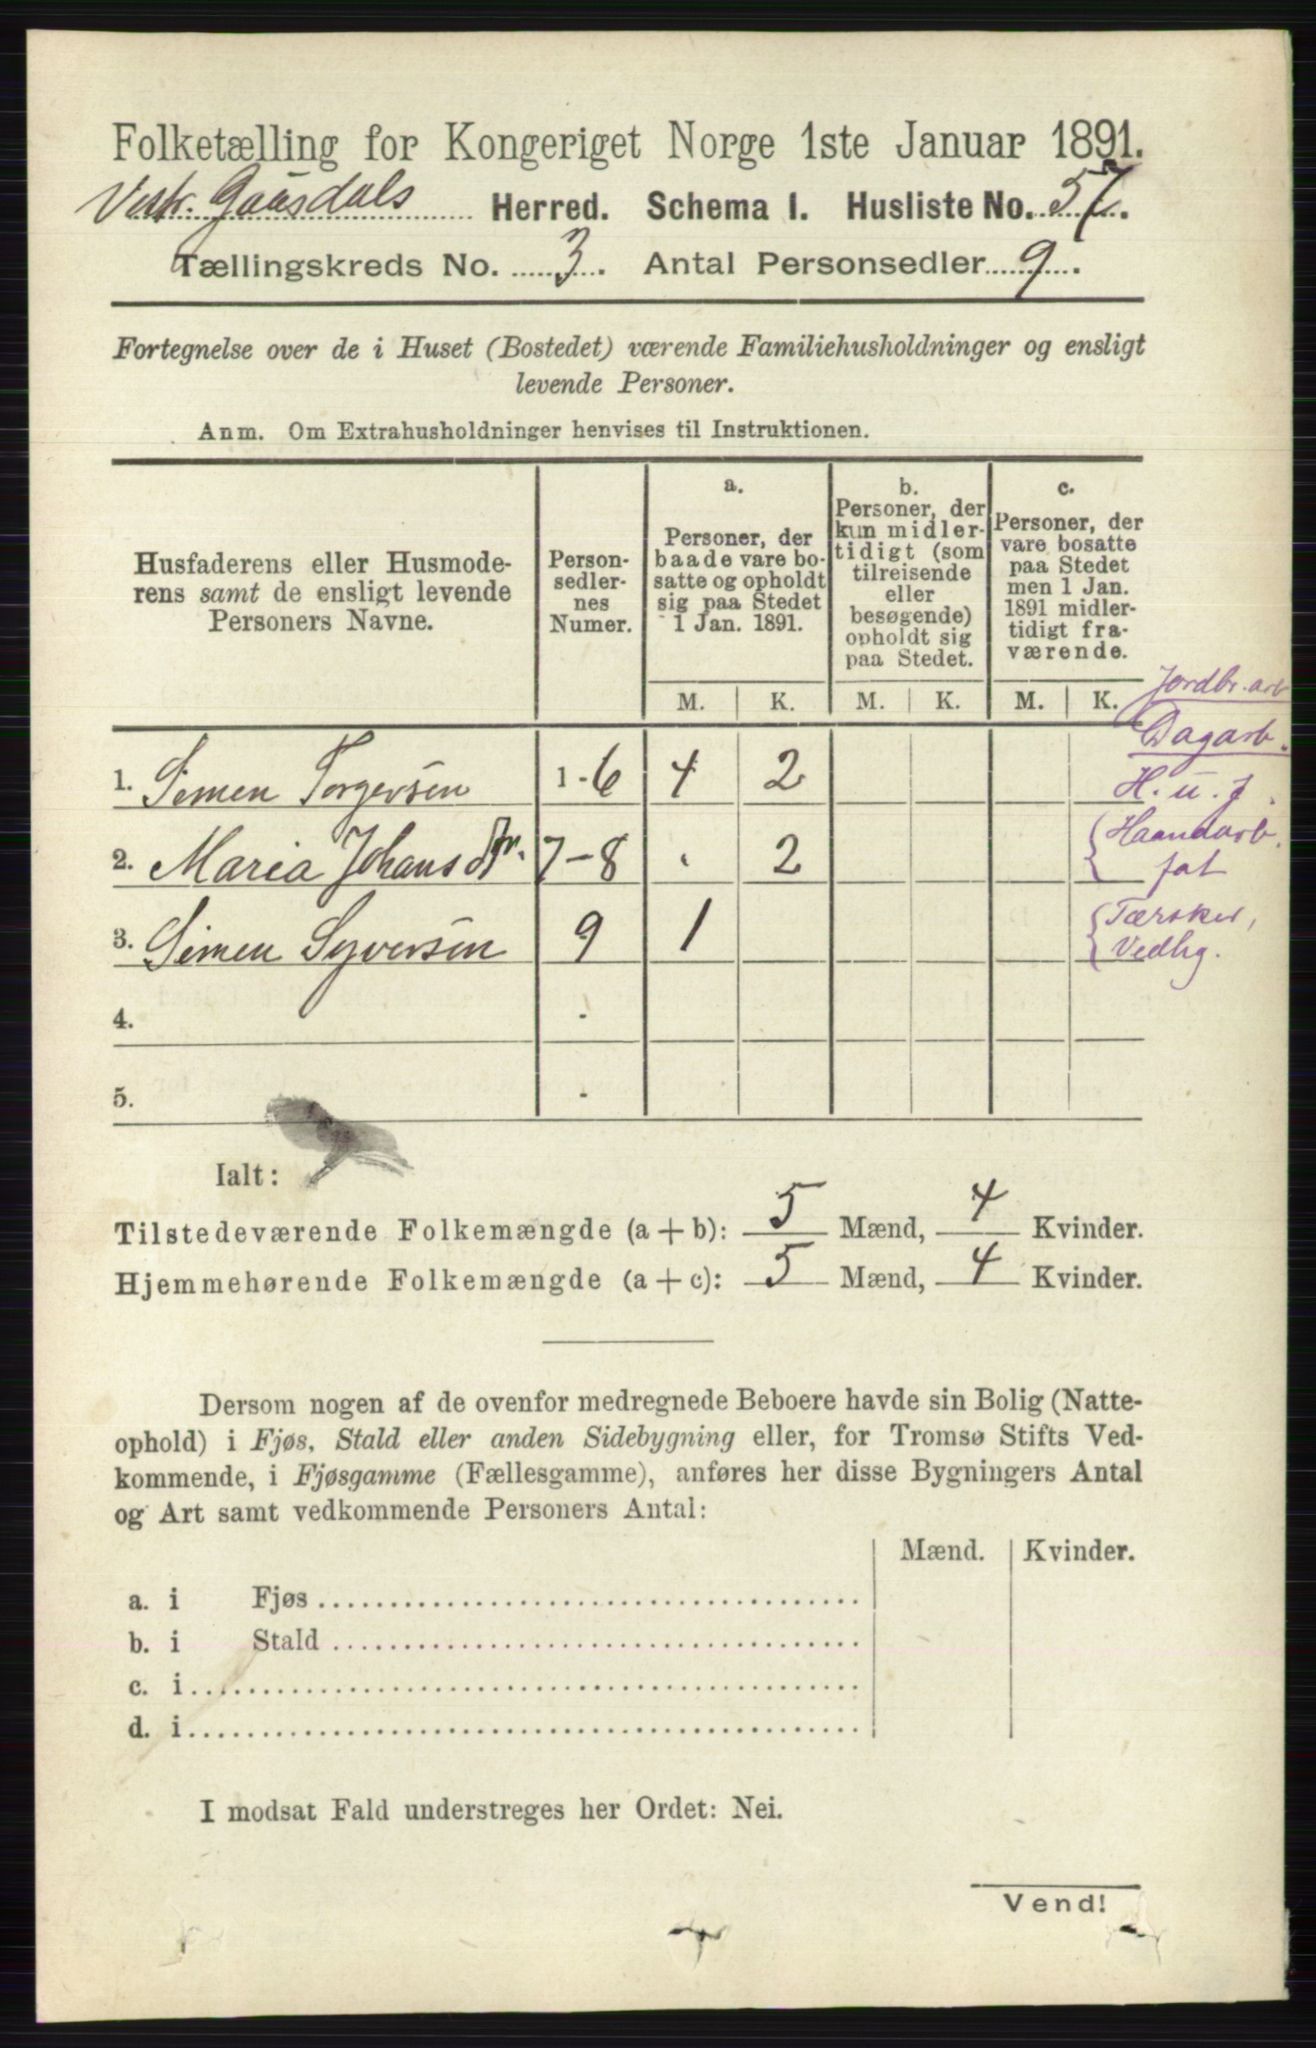 Folketælling for Kongeriget Norge 1ste Januar 1891.
Vestr. Gausdals Herred. Schema I. Husliste No. 57.
Tællingskreds No. 3. Antal Personsedler 9.
Fortegnelse over de i Huset (Bostedet) værende Familiehusholdninger og ensligt
levende Personer.
Anm. Om Extrahusholdninger henvises til Instruktionen.
Husfaderens eller Husmode-
rens samt de ensligt levende
Personers Navne.
Person-
sedler-
nes
Numer.
a.
Personer, der
baade vare bo-
satte og opholdt
sig paa Stedet
1 Jan. 1891.
b.
Personer, der
kun midler-
tidigt (som
tilreisende
eller
besøgende)
opholdt sig
paa Stedet.
c.
Personer, der
vare bosatte
paa Stedet
men 1 Jan.
1891 midler-
tidigt fra-
værende.
M. K. M. K. M. K.
Jordbr. arb
Dagarb.
1. Simen Torgersen 1-6 4 2
H. u. j.
2. Maria Johansdtr. 7-8 . 2
Haandarb.
fat
3. Simen Syversen 9 1
Tærsker,
Vedhg.
4. -
5. -
Ialt:
Tilstedeværende Folkemængde (a + b): 5 Mænd, 4 Kvinder.
Hjemmehørende Folkemængde (a + c): 5 Mænd, 4 Kvinder.
Dersom nogen af de ovenfor medregnede Beboere havde sin Bolig (Natte-
ophold) i Fjøs, Stald eller anden Sidebygning eller, for Tromsø Stifts Ved-
kommende, i Fjøsgamme (Fællesgamme), anføres her disse Bygningers Antal
og Art samt vedkommende Personers Antal:
Mænd. Kvinder.
a. i Fjøs
b. i Stald
c. i
d. i
I modsat Fald understreges her Ordet: Nei.
Vend!